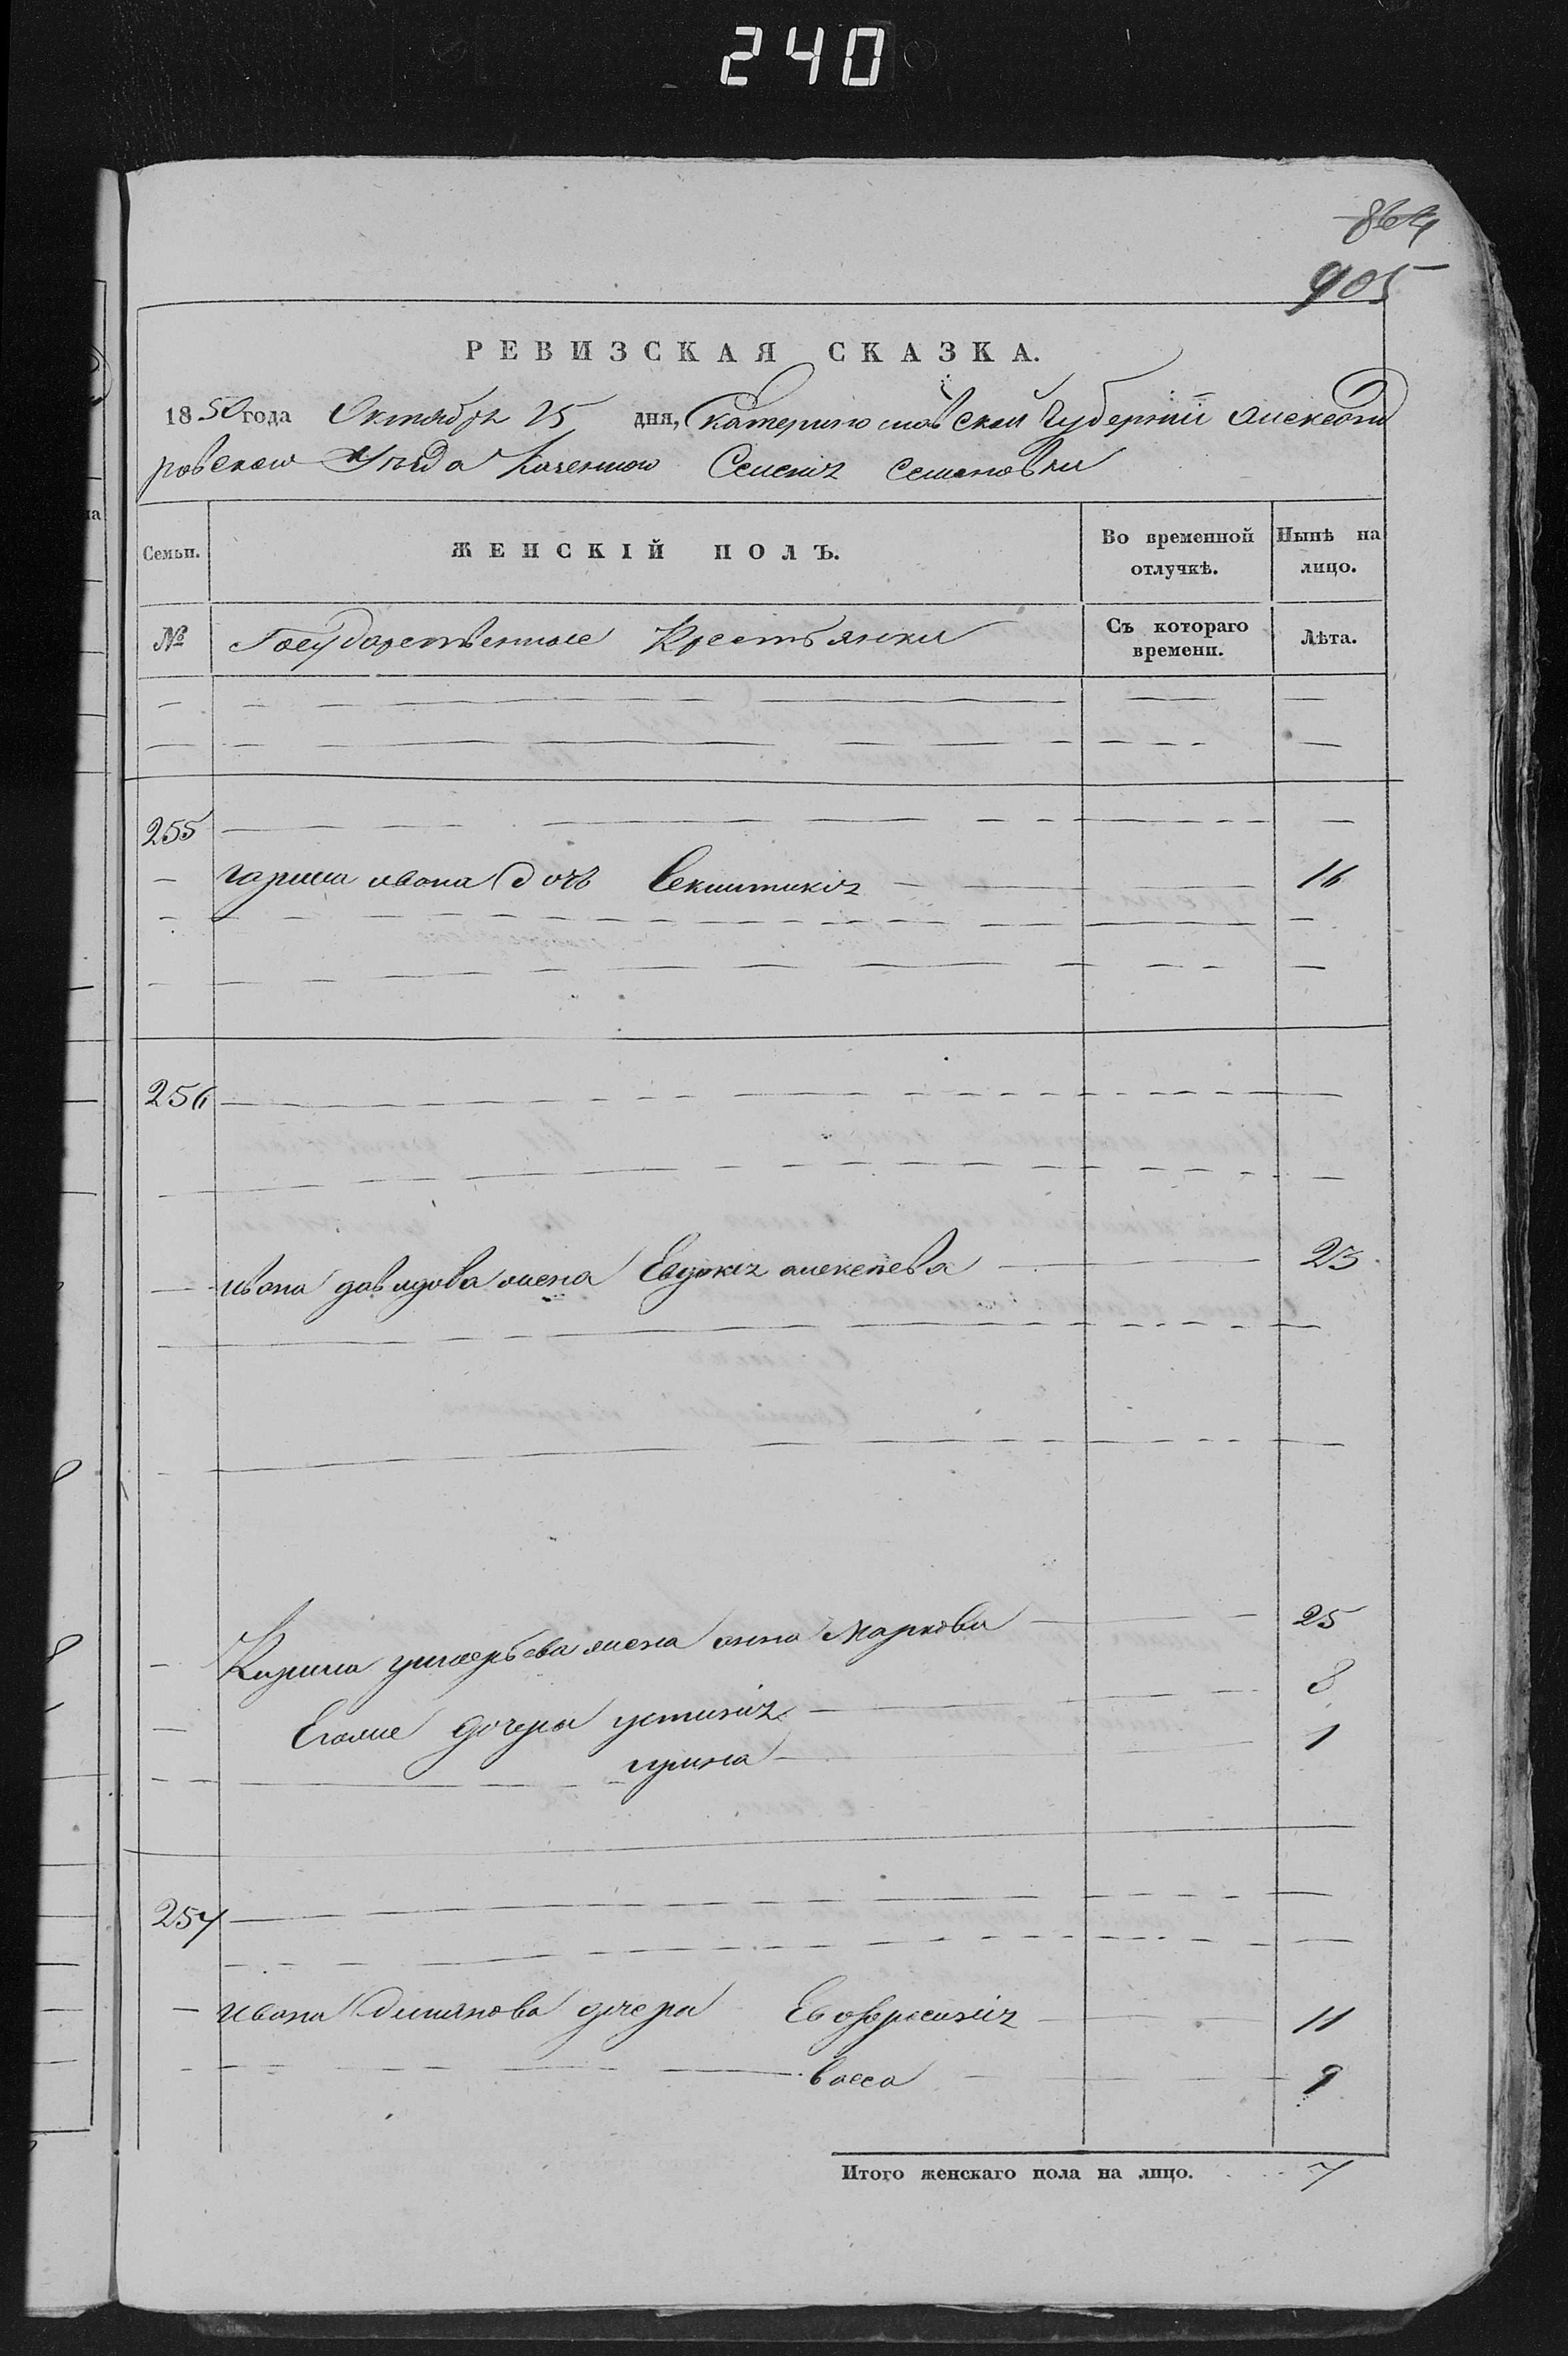 240
864
905
РЕВИЗСКАЯ СКАЗКА.
1850 года Октября 25 дня, Екатеринославской Губернии Александ
ровскаго Уѣзда Казеннаго Селения Семеновки
Семьи. ЖЕНСКІЙ ПОЛЪ. Во временной отлучкѣ. Нынѣ на лицо.
№ Государственные Крестьянки Съ котораго времени. Лѣта.
255
ивана дочь 16
256
Ивана давидова жена Евдокия алексеева 23
жена анна Маркова 25
Егоже дочери устиния 8
ирина 1
257
Ивана дочери Евфросиния 11
васса 9
Итого женскаго пола на лицо. 7